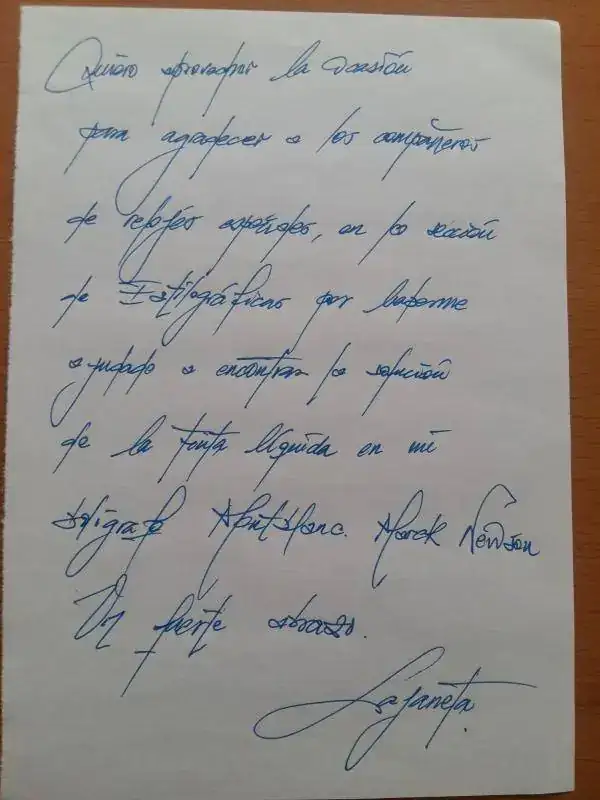 Quiero aprovechar la ocasión
para agradecer a los compañeros
de relojes especiales, en la sección
de Estilográficas por haberme
ayudado a encontrar la solución
de la tinta líquida en mi
bolígrafo Montblanc. Marck Newson
Un fuerte abrazo.